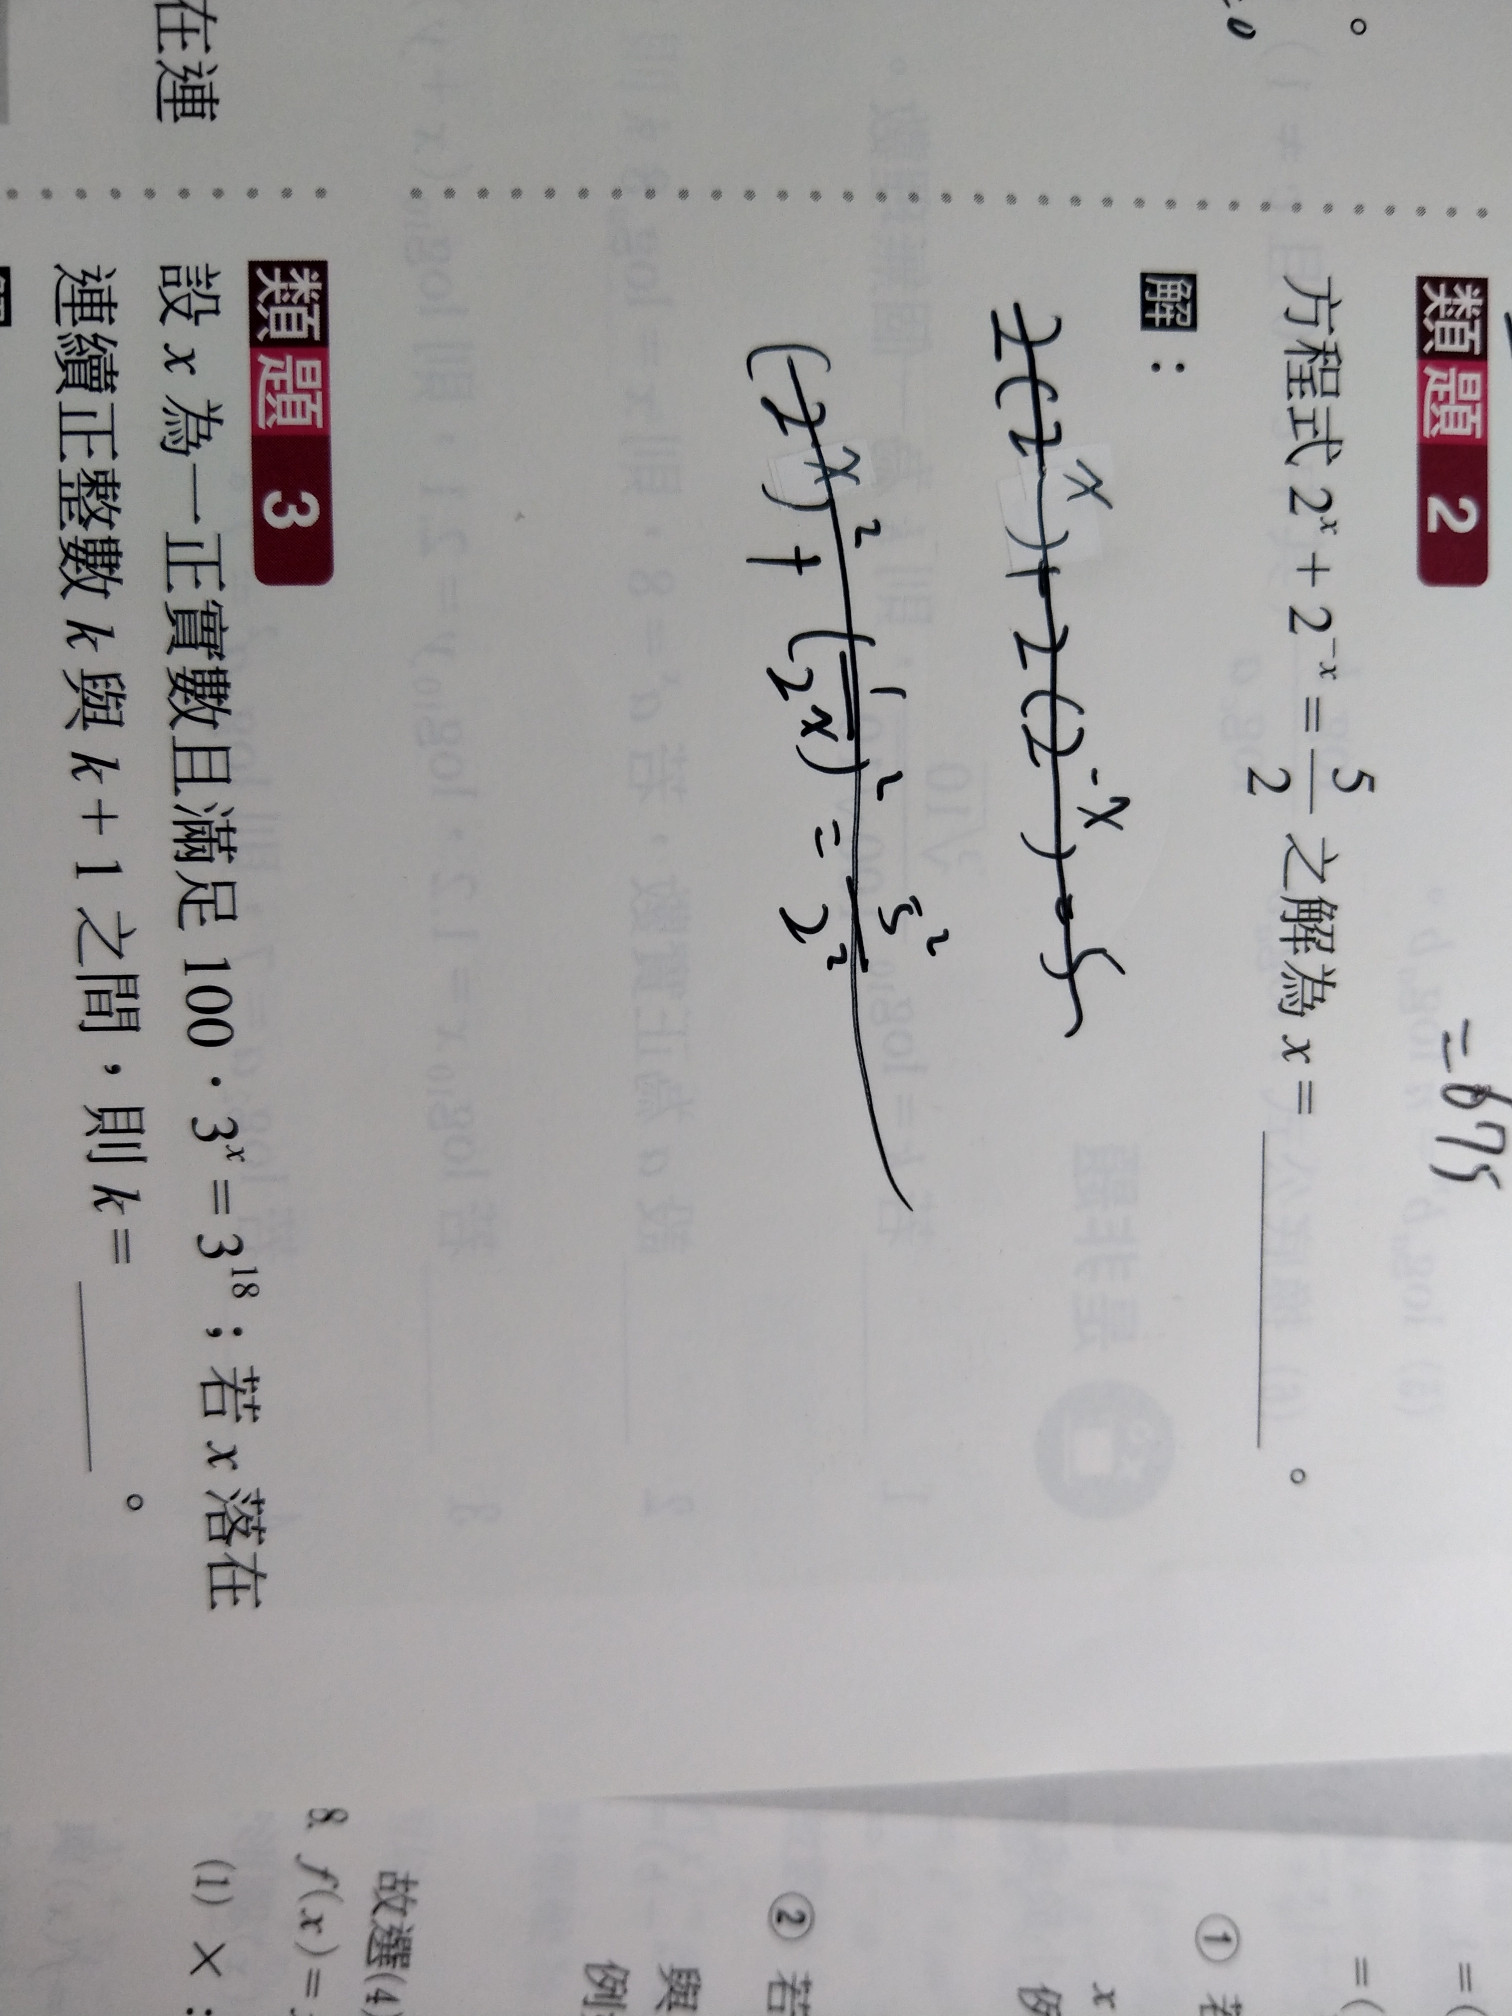 = 675
類題 2
方程式 2^x + 2^{-x} = 5/2 之解為 x = ______ 。
解：
2(2^x) + 2(2^{-x}) = 5
(2^x)^2 + (1/2^x)^2 = 5^2/2^2
類題 3
設 x 為一正實數且滿足 100 · 3^x = 3^{18}；若 x 落在
連續正整數 k 與 k + 1 之間，則 k = ______ 。
在連
①
x
② 若
與
例
故選(4)
8. f(x) =
(1) ×：